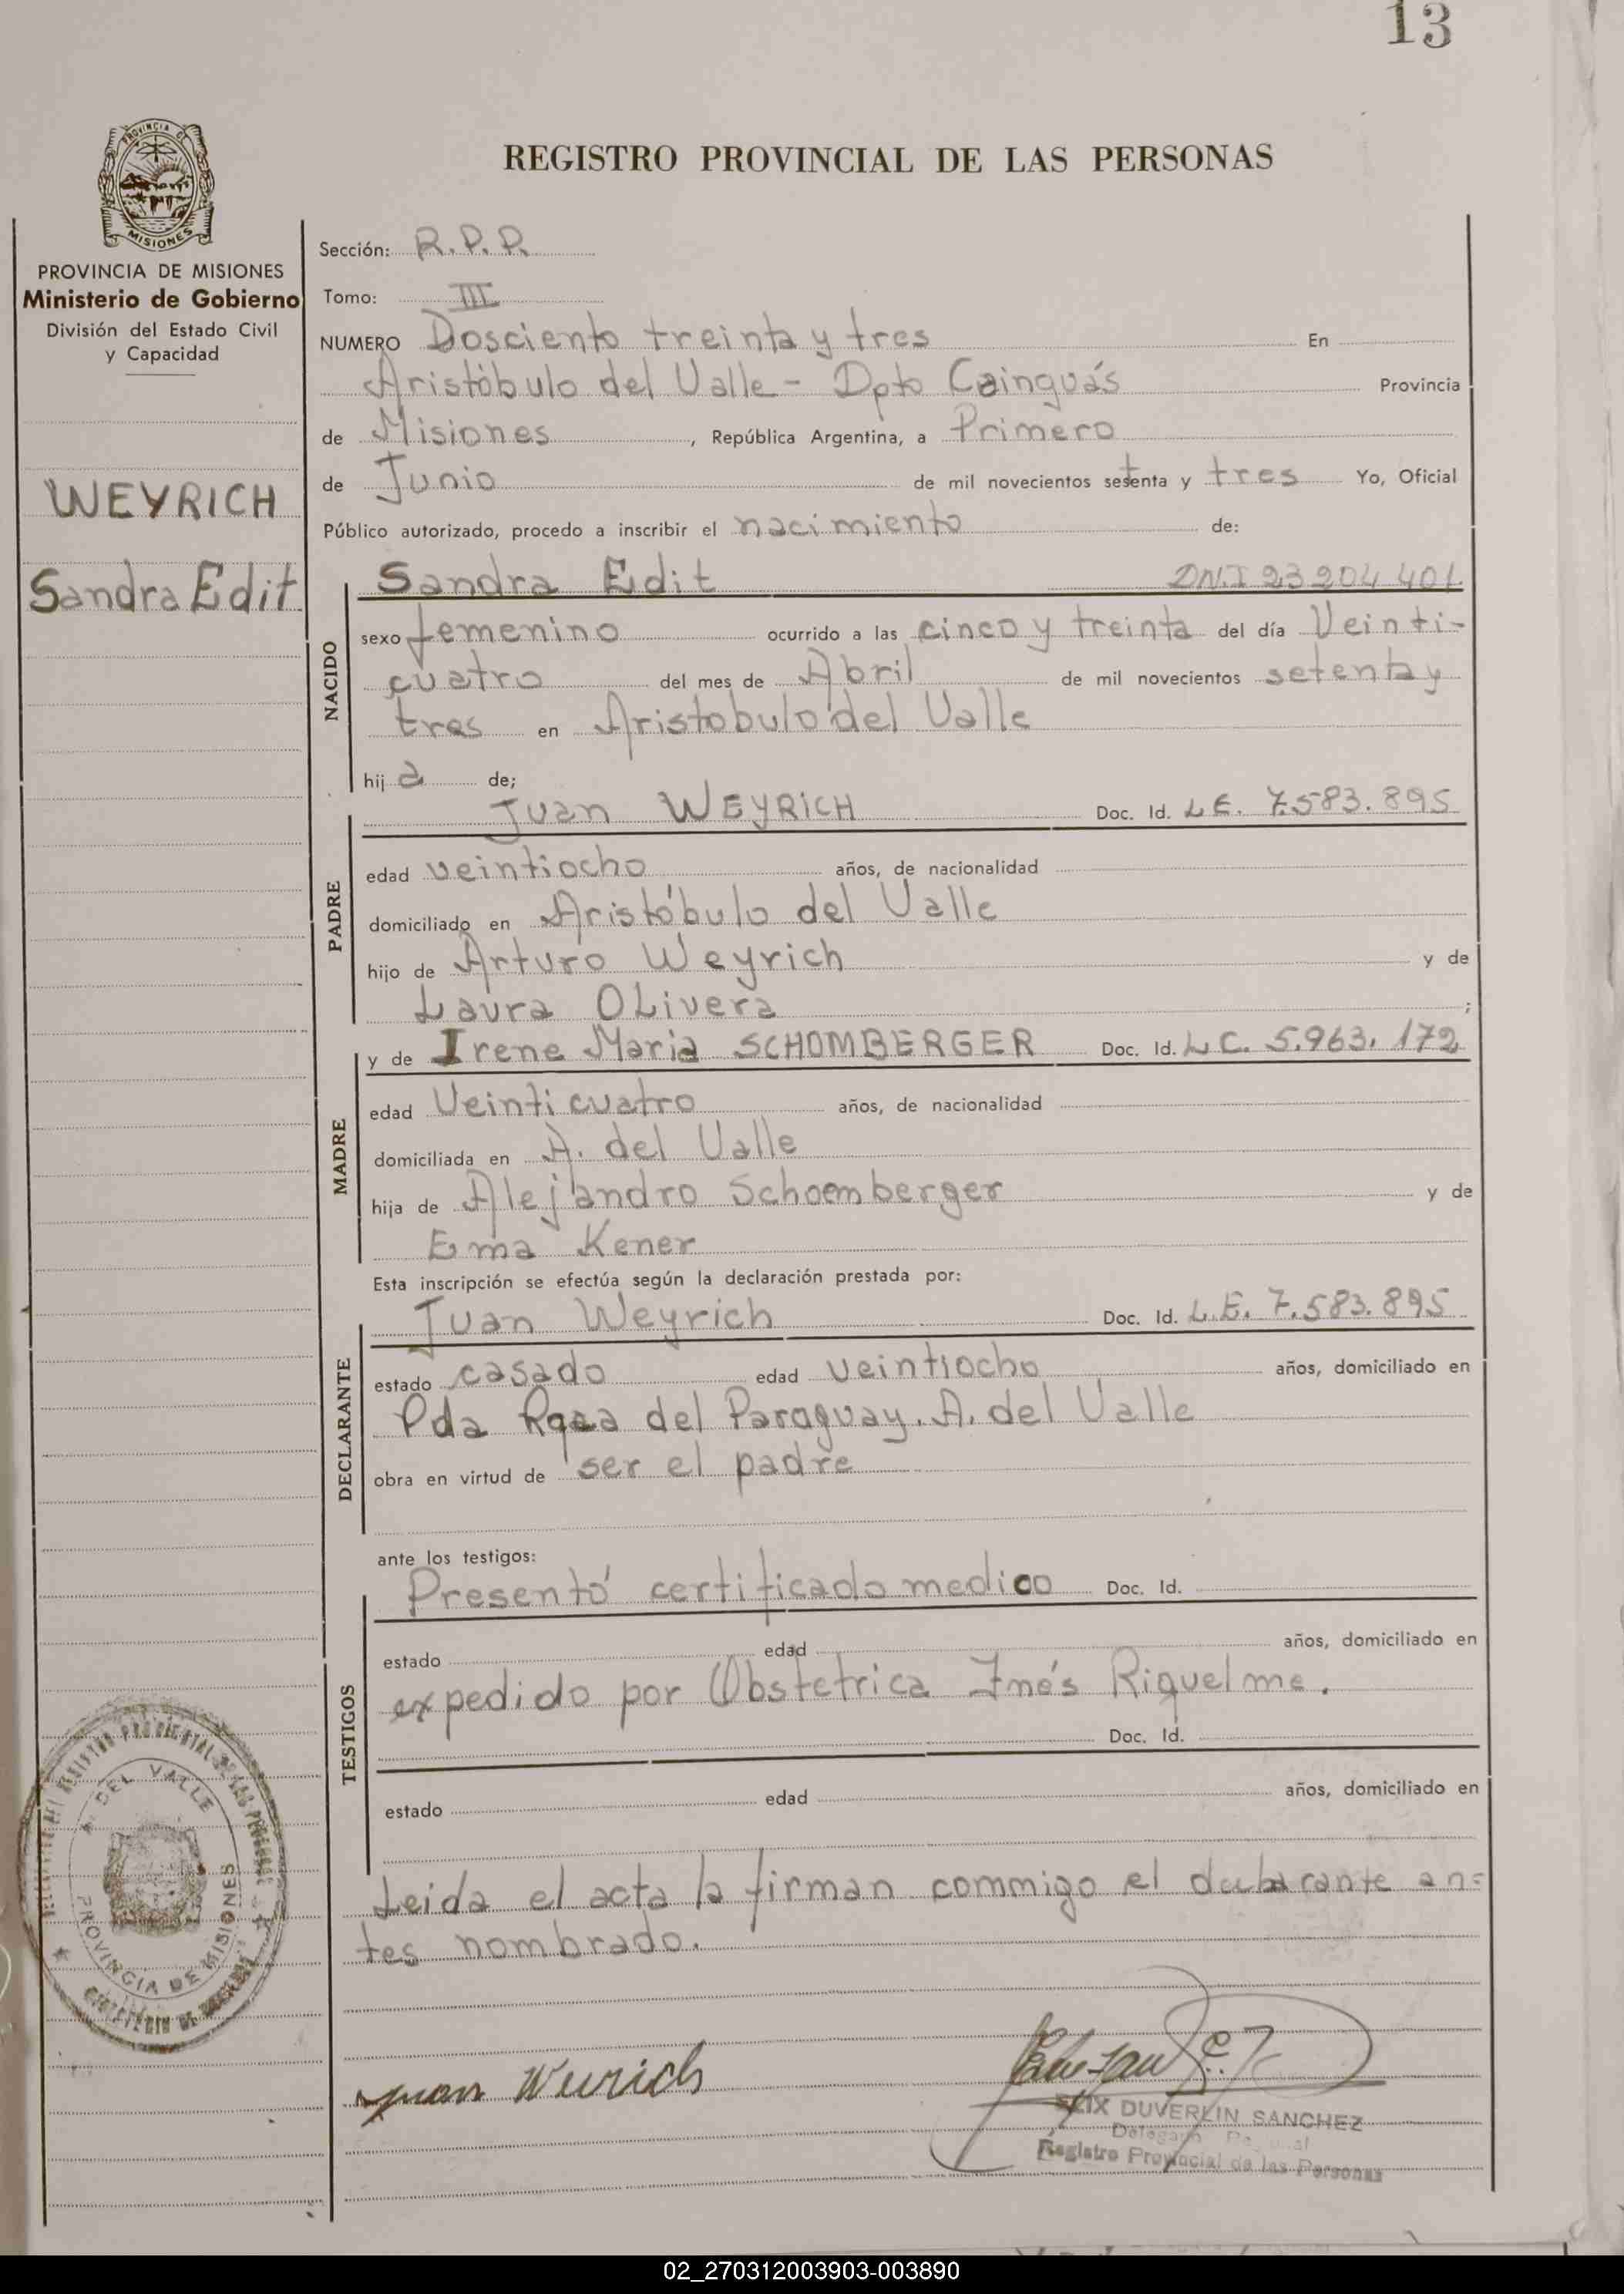 13
PROVINCIA DE
MISIONES
REGISTRO PROVINCIAL DE LAS PERSONAS
PROVINCIA DE MISIONES
Ministerio de Gobierno
División del Estado Civil
y Capacidad
WEYRICH
Sandra Edit
Sección: R.P.P.
Tomo: III
NUMERO Dosciento treinta y tres En
Aristóbulo del Valle - Dpto Cainguás Provincia
de Misiones, República Argentina, a Primero
de Junio de mil novecientos setenta y tres Yo, Oficial
Público autorizado, procedo a inscribir el nacimiento de:
NACIDO
Sandra Edit DN.I 23 204 401
sexo femenino ocurrido a las cinco y treinta del día Veinti-
cuatro del mes de Abril de mil novecientos setenta y
tres en Aristobulo del Valle
hij a de;
PADRE
Juan WEYRICH Doc. Id. L.E. 7.583.895
edad veintiocho años, de nacionalidad
domiciliado en Aristóbulo del Valle
hijo de Arturo Weyrich y de
Laura OLivera ;
MADRE
y de Irene Maria SCHOMBERGER Doc. Id. L.C. 5.963.172
edad Veinticuatro años, de nacionalidad
domiciliada en A. del Valle
hija de Alejandro Schoemberger y de
Ema Kener
Esta inscripción se efectúa según la declaración prestada por:
DECLARANTE
Juan Weyrich Doc. Id. L.E. 7.583.895
estado casado edad veintiocho años, domiciliado en
Pda del Paraguay. A. del Valle
obra en virtud de ser el padre
ante los testigos:
TESTIGOS
Presentó certificado medico Doc. Id.
estado edad años, domiciliado en
expedido por Obstetrica Inés Riquelme.
Doc. Id.
estado edad años, domiciliado en
Leida el acta la firman commigo el declarante an=
tes nombrado.
REGISTRO PROVINCIAL DE LAS PERSONAS
A. DEL VALLE
PROVINCIA DE MISIONES
Juan Weirich
FELIX DUVERLIN SANCHEZ
Registro Provincial de las Personas
02_270312003903-003890